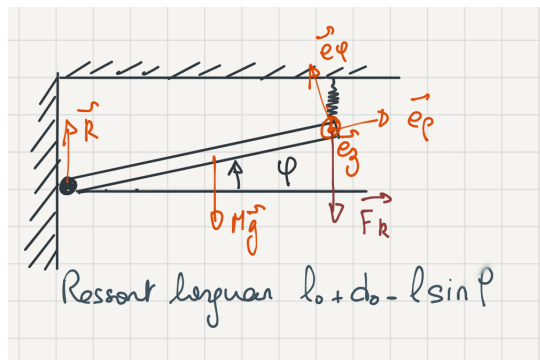 e⃗φ
R⃗
e⃗ρ
e⃗z
φ
Mg⃗
F⃗k
Ressort longueur l₀ + d₀ - l sin φ